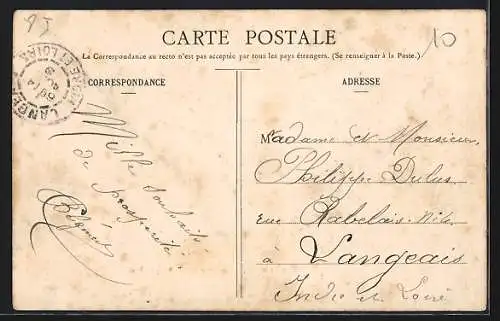 95
10
CARTE POSTALE
La Correspondance au recto n'est pas acceptée par tous les pays étrangers. (Se renseigner à la Poste.)
CORRESPONDANCE
ADRESSE
LANGEAIS INDRE-ET-LOIRE
Mille souhaits
de prospérité.
Madame et Monsieur
Philippe Dulus
rue Rabelais
à
Langeais
Indre et Loire